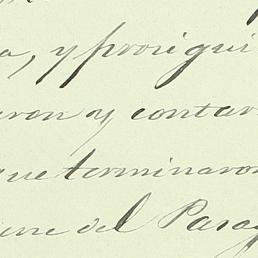 a, y prosigui
aron y contar
que terminaron
del Parag